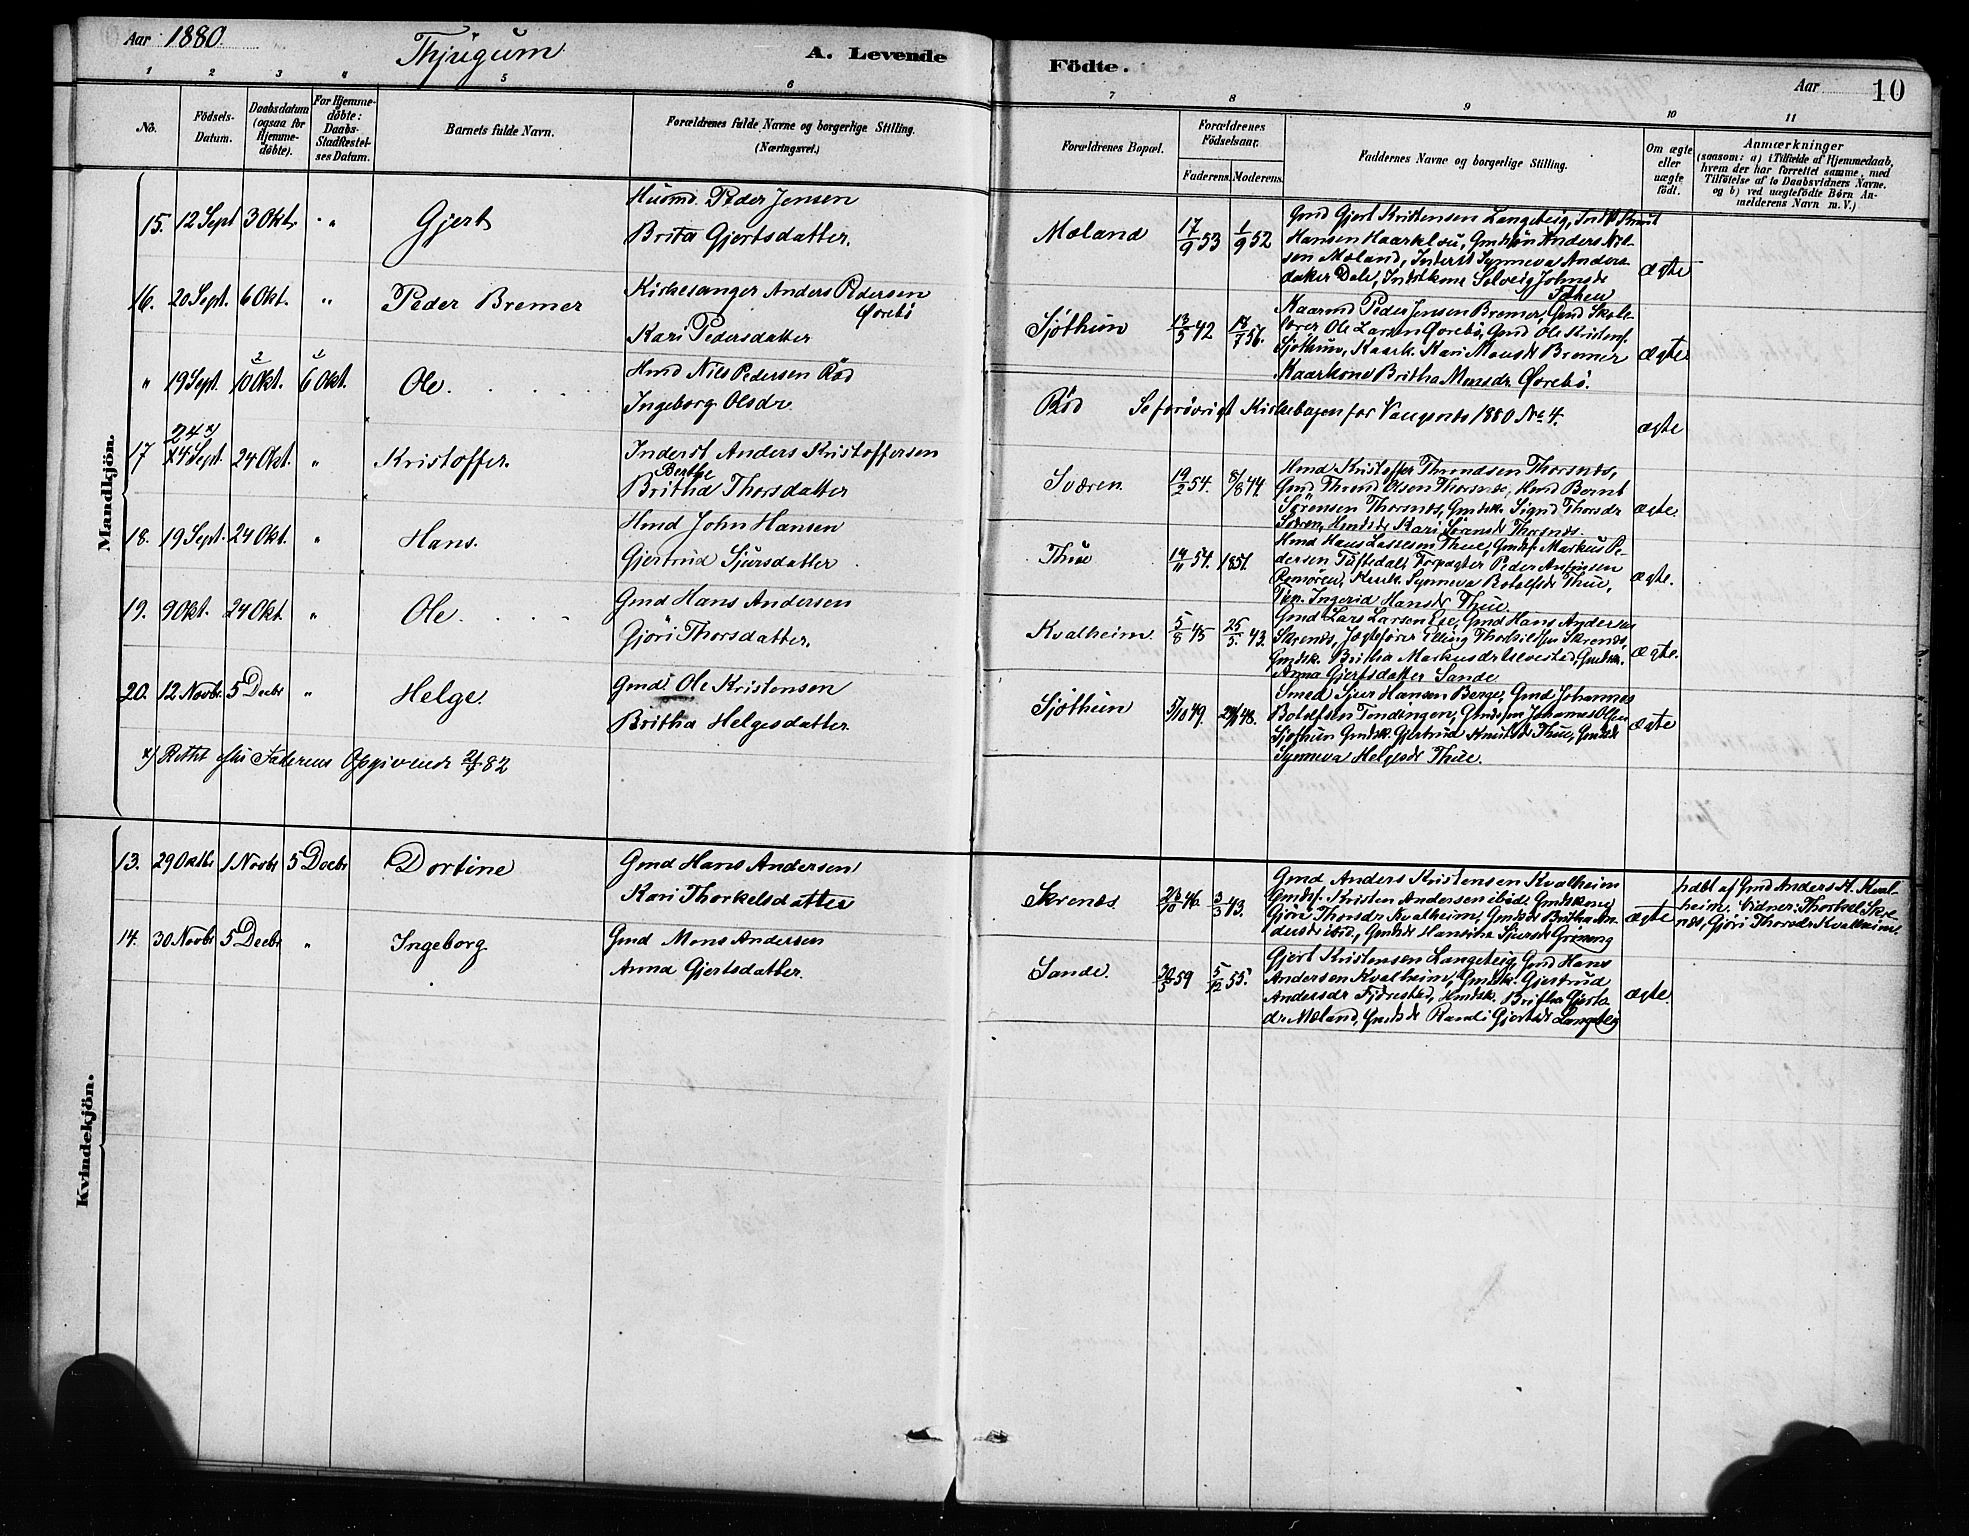 Aar 1880.
Thjugum
A. Levende Födte.
Aar
10
1 2 3 4 5 6 7 8 9 10 11
No.
Födsels-Datum.
Daabsdatum (ogsaa for Hjemme-döbte).
For Hjemme-döbte: Daabs-Stadfæstel-ses Datum.
Barnets fulde Navn.
Forældrenes fulde Navne og borgerlige Stilling. (Næringsvei.)
Forældrenes Bopæl.
Forældrenes Födselsaar.
Faderens. Moderens.
Faddernes Navne og borgerlige Stilling.
Om ægte eller uægte födt.
Anmærkninger
(saasom: a) i Tilfælde af Hjemmedaab,
hvem der har forrettet samme, med
Tilföielse af to Daabsvidners Navne.
og b) ved uægtefödte Börn An-
melderens Navn m. V.)
Mandkjön.
15. 12 Sept 3 Okt. " Gjert
Husmd. Peder Jensen
Brita Gjertsdatter.
Mæland 17/9 53 1/9 52
Gmd Gjert Kristensen Langeteig, Indst Knut
Hansen Haarklou, Gmdsön Anders Nil-
sen Mæland, Inderst Synneva Anders
datter Dale, Indstkone Solveig Johnsdr
Föthen
ægte
16. 20 Sept. 6 Okt. " Peder Bremer
Kirkesanger Anders Pedersen
Övrebö
Kari Pedersdatter
Sjöthun 13/5 42 17/7 56.
Kaarmd Peder Jensen Bremer, Gmd Skole-
lærer Ole Larsen Övrebö, Gmd Ole Kristens.
Sjöthun, Kaark. Kari Monsdr Bremer
Kaarkone Britha Monsdr Övrebö.
ægte
" 19 Sept. 10 Okt. 6 Okt. Ole.
Hmd Nils Pedersen Röd
Ingeborg Olsdr.
Röd Se forövrigt Kirkebogen for Vangsnæs 1880 No 4.
ægte
24 x)
17 14 Sept. 24 Okt. " Kristoffer.
Inderst Anders Kristoffersen
Berthe
Britha Thorsdatter
Sværen 19/2 54. 8/8 44.
Hmd Kristoffer Throndsen Thorsnæs,
Gmd Thrond Olsen Thorsnæs, Hmd Bernt
Sörensen Thorsnæs, Gmdsk. Signd Thorsdr
Sværen, Hmdsdr Kari Sörensdr Thorsnæs.
ægte.
18. 19 Sept. 24 Okt. " Hans.
Hmd John Hansen
Gjertrud Sjursdatter
Thue 14/11 54. 1851.
Hmd Hans Lassesen Thue, Gmdsf. Markus Pe-
dersen Tuftedal, Forpagter Peder Anfinsen
Röymören, Hmdk. Synneva Botolfsdr Thue,
Pige Ingerid Hansdr Thue.
ægte.
19. 9 Okt. 24 Okt. " Ole.
Gmd Hans Andersen
Gjöri Thorsdatter.
Kvalheim. 5/8 45 25/5. 43.
Gmd Lars Larsen Ese, Gmd Hans Andersen
Skrenæs, Jægtefører Elling Thorkildsen Skrenæs,
Gmdsk. Britha Markusdr Ulvested, Gmdsk.
Anna Gjertsdatter Sande
ægte.
20. 12 Novbr 5 Decbr " Helge.
Gmd. Ole Kristensen
Britha Helgesdatter.
Sjöthun 5/10 49.
Smed Sjur Hansen Berge, Gmd Johannes
Botolfsen Tendingen, Gmdssön Johannes Olsen
Sjöthun Gmdsk. Gjertrud Knutsdr Thue, Gmdsdr
Synneva Helgesdr Thue.
ægte
x) Rettet efter Faderens Opgivende 82
Kvindekjön.
13. 29 Oktbr 1 Novbr 5 Decbr Dortine
Gmd Hans Andersen
Kari Thorkelsdatter
Skrenæs 23/10 46. 3/3 43.
Gmd Anders Kristensen Kvalheim
Gmdsf. Kristen Andersen ibid. Gmdskone
Gjöri Thorsdr Kvalheim, Gmdsdr Britha An-
dersdr ibid, Gmdsdr Hansine Sjursdr Gröneng
ægte
hdbt af Gmd Anders K. Kval-
heim. Vidner: Thorkel Skre-
næs, Gjöri Thorsdr Kvalheim.
14. 30 Novbr 5 Decbr " Ingeborg
Gmd Mons Andersen
Anna Gjertsdatter.
Sande. 30/5 59 5/12 55.
Gjert Kristensen Langeteig, Gmd Hans
Andersen Kvalheim, Gmdsk. Gjertrud
Andersdr Fjörestad, Hmdsk. Britha Gjerts-
dr Mæland, Gmdsdr Randi Gjertsdr Langeteig
ægte.